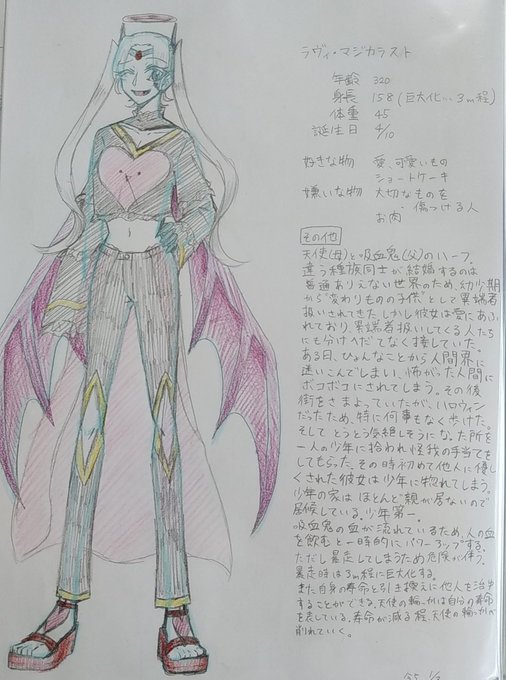 ラヴィ・マジカラスト
年齢 320
身長 158 (巨大化…3m程)
体重 45
誕生日 4/10
好きな物 愛、可愛いもの
ショートケーキ
嫌いな物 大切なものを
傷つける人
お肉
その他
天使(母)と吸血鬼(父)のハーフ。
違う種族同士が結婚するのは
普通ありえない世界のため、幼少期
から"変わりものの子供"として異端者
扱いされてきた。しかし彼女は愛にあふ
れており、異端者扱いしてくる人たち
にも分けへだてなく接していた。
ある日、ひょんなことから人間界に
迷いこんでしまい、怖がった人間に
ボコボコにされてしまう。その後
街をさまよっていたが、ハロウィン
だったため、特に何事もなく歩けた。
そしてとうとう気絶しそうになった所を
一人の少年に拾われ怪我の手当てを
してもらった。その時初めて他人に優し
くされた彼女は少年に惚れてしまう。
少年の家はほとんど親が居ないので
居候している。少年第一。
吸血鬼の血が流れているため、人の血
を飲むと一時的にパワーアップする。
ただし暴走してしまうため危険が伴う。
暴走時は3m程に巨大化する。
また自身の寿命と引き換えに他人を治す
ことができる。天使の輪っかは自分の寿命
を表している。寿命が減る程、天使の輪っかが
削れていく。